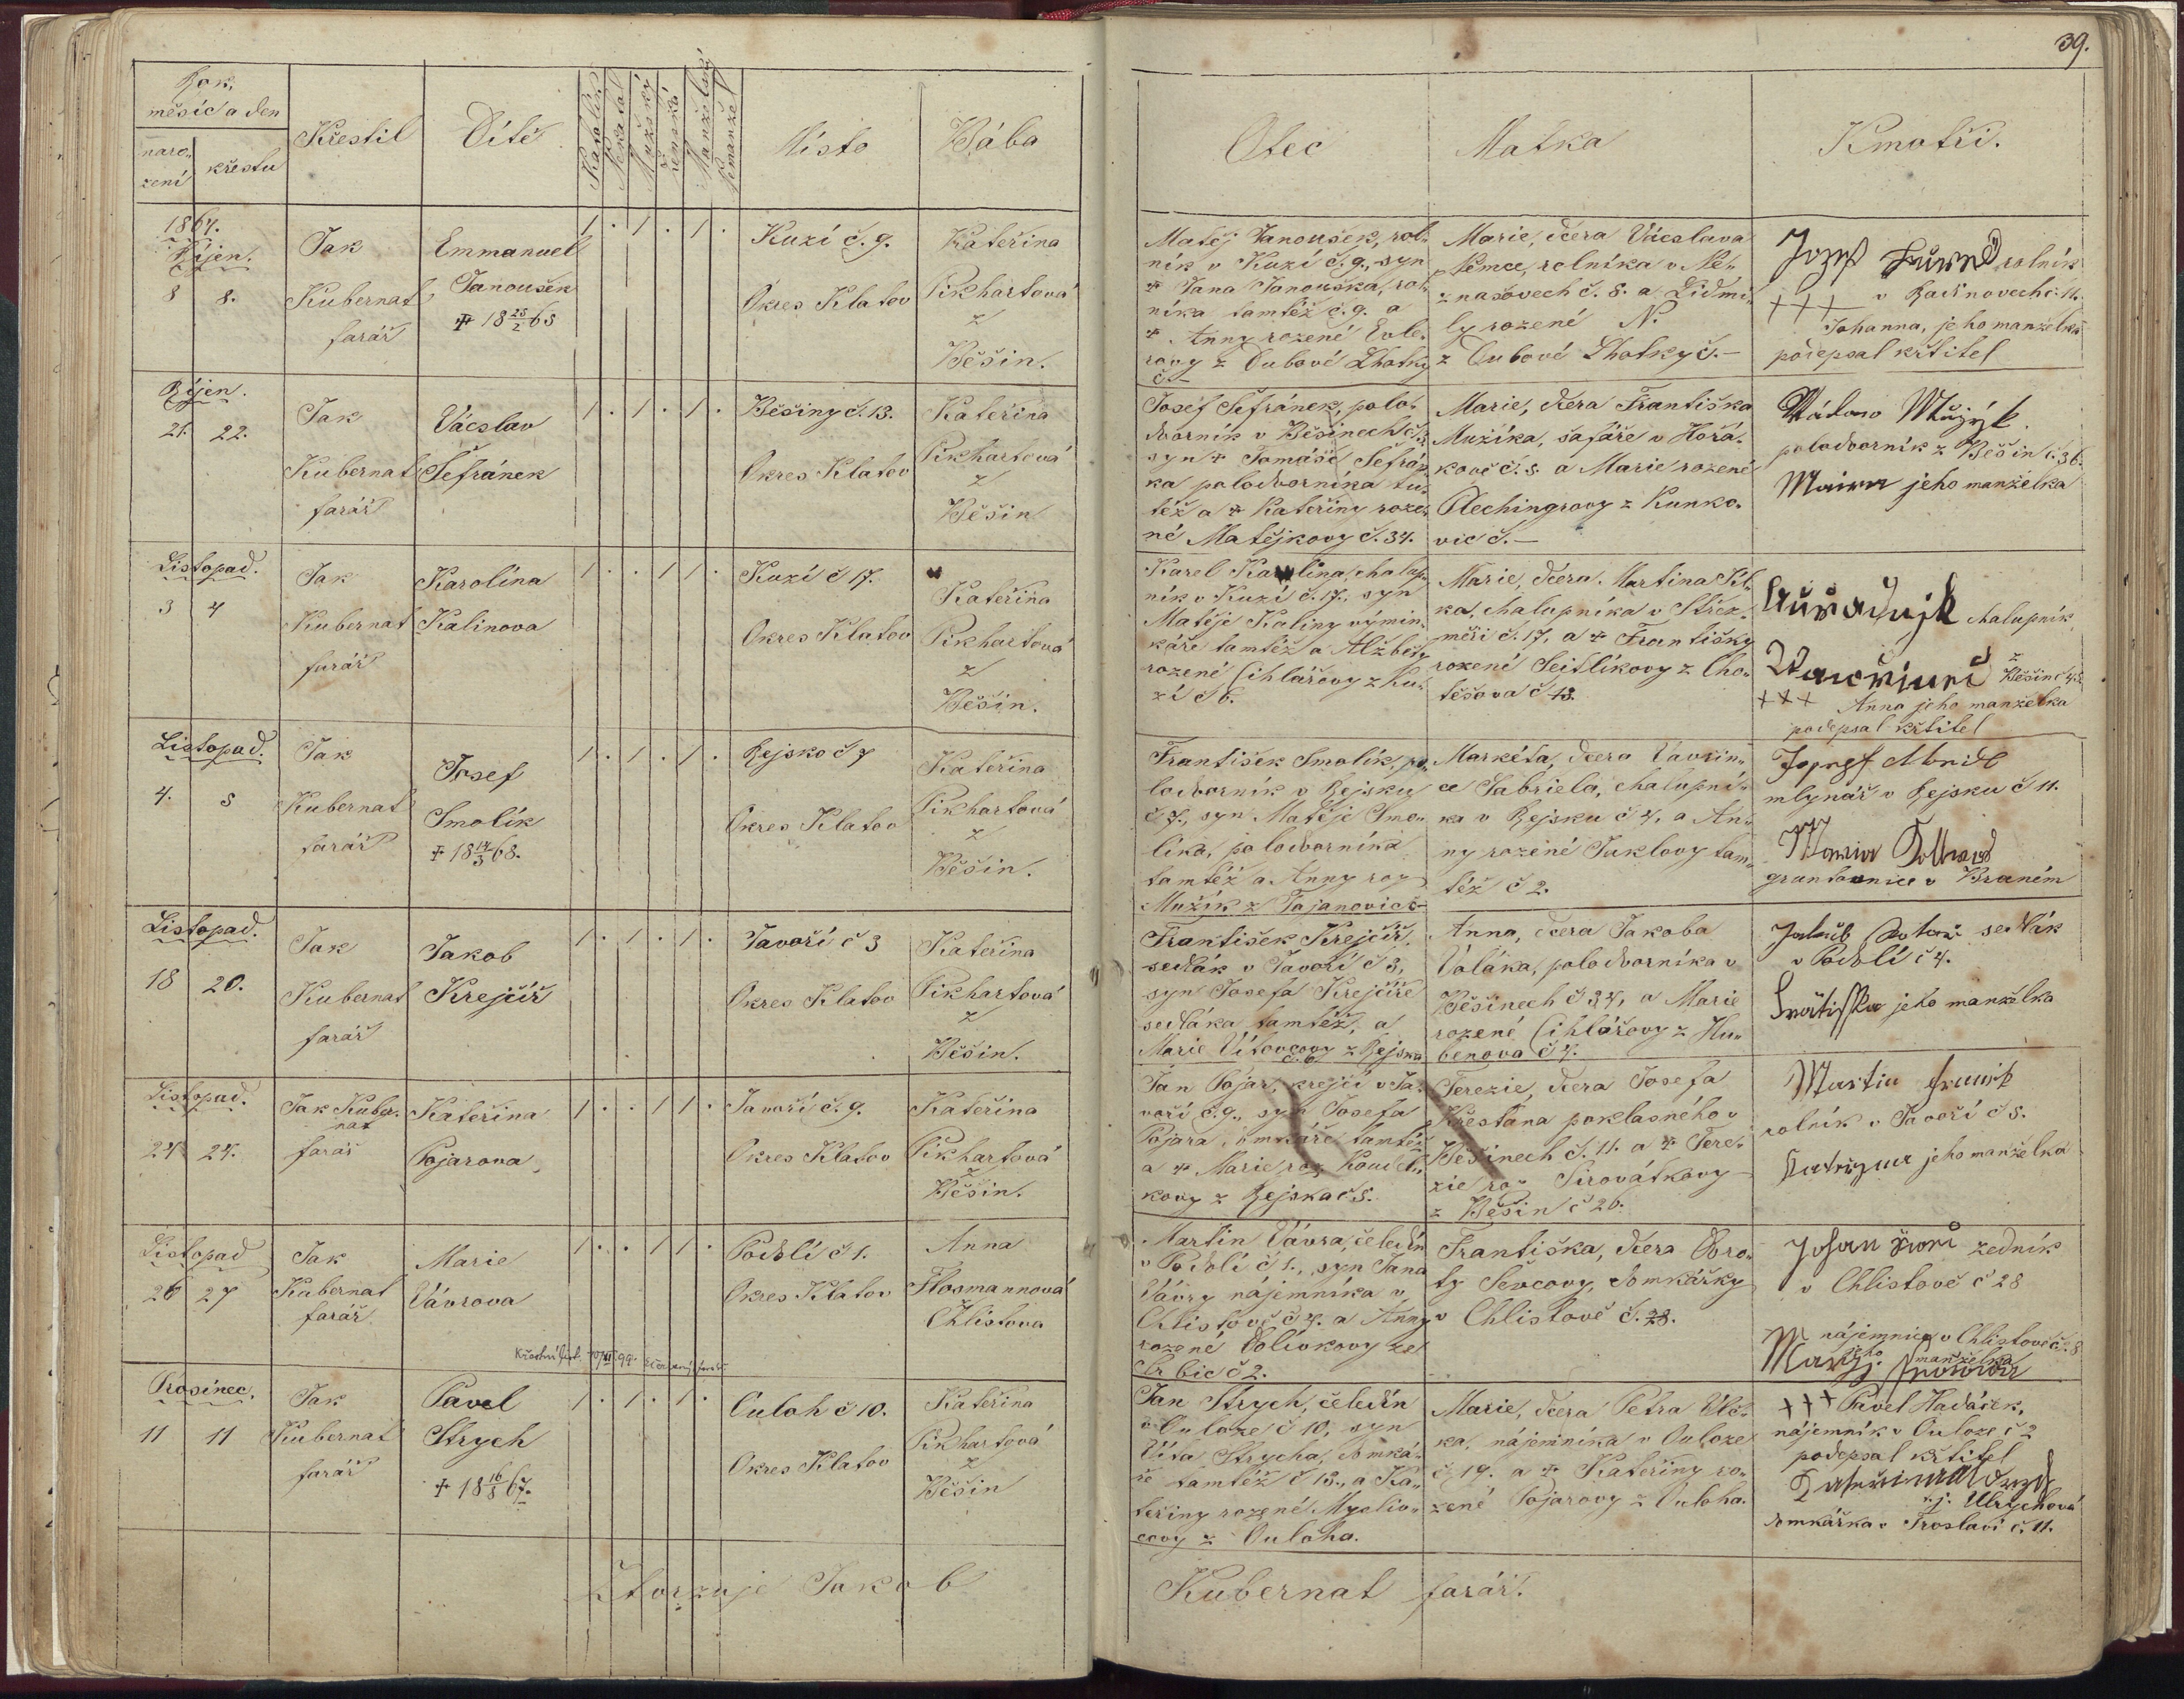 39.
Rok,
měsíc a den
naro-
zení
křestu
Křestil
Dítě
Katolík
Nekatol
Mužský
ženská
Manželský
Nemanžel
Místo
Bába
Otec
Matka
Kmotři.
1864.
Říjen.
8 8.
Jak
Kubernat
farář
Emmanuel
Janoušek
1 . 1 . 1 .
Kuzí č. 9.
Okres Klatov
Kateřina
Pikhartová
z
Běšin.
Matěj Janoušek, rol-
ník v Kuzí č. 9., syn
Jana Janouška, rol-
níka tamtéž č. 9. a
Anny rozené
z Dubové Lhotky
č. –
Marie, dcera Vácslava
Němce, rolníka v Ne-
znašovech č. 8. a Lidmi-
ly rozené N.
z Dubové Lhotky č. –
Jozef rolník
+++ v č. 11.
Johanna, jeho manželka
podepsal křtitel
Říjen.
21. 22.
Jak
Kubernat
farář
Vácslav
Šefránek
1 . 1 . 1 .
Běšiny č. 13.
Okres Klatov
Kateřina
Pikhartová
z
Běšin
Josef Šefránek, polo-
dvorník v Běšinech č.
syn Tomáše Šefrán-
ka polodvorníka tu-
též a Kateřiny roze-
né Matějkovy č. 34.
Marie, dcera Františka
Mužíka, šafáře v Hořá-
kově č. 8. a Marie rozené
z Kunko-
vic č. –
Mužýk
polodvorník z Běšin č. 36.
jeho manželka
Listopad.
3 4
Jak
Kubernat
farář
Karolína
Kalinova
1 . . 1 1 .
Kuzí č 17.
Okres Klatov
Kateřina
Pikhartová
z
Běšin.
Karel Kalina, chalup-
ník v Kuzí č. 17., syn
Matěje Kaliny výmin-
káře tamtéž a Alžběty
rozené Cihlářovy z Ku-
zí č 6.
Marie, dcera Martina
ka, chalupníka v Střez-
měři č. 17, a Františky
rozené Sejtlíkovy z Cho-
těšova č 13.
chalupník
z
Běšin č 42
+++ Anna jeho manželka
podepsal křtitel
Listopad.
4. 5
Jak
Kubernat
farář
Josef
Smolík
1 . 1 . 1 .
Rejsko č 7
Okres Klatov
Kateřina
Pikhartová
z
Běšin.
František Smolík, po-
lodvorník v Rejsku
č 7., syn Matěje Smo-
líka, polodvorníka
tamtéž a Anny roz
Mužík z Tajanovic č –
Markéta, dcera Vavřin-
ce Gabriela, chalupní-
ka v Rejsku č 4, a An-
ny rozené Tuklovy tam-
též č 2.
mlynář v Rejsku č 11.
Maria
gruntovnice v Braném
Listopad.
18 20.
Jak
Kubernat
farář
Jakob
Krejčíř
1 . 1 . 1 .
Javoří č 3
Okres Klatov
Kateřina
Pikhartová
z
Běšin.
František Krejčíř
sedlák v Javoří č 3,
syn Josefa Krejčíře
sedláka tamtéž, a
Marie Vítovcovy z Rejska
č. 6
Anna, dcera Jakoba
Voláka, polodvorníka v
Běšinech č 34, a Marie
rozené Cihlářovy z Hu-
benova č 4.
Jakub sedlák
v Podolí č 4.
jeho manželka
Listopad.
24 24.
Jak Kuber-
nat
farář
Kateřina
Pojarova
1 . . 1 1 .
Javoří č. 9.
Okres Klatov
Kateřina
Pikhartová
z
Běšin.
Jan Pojar, krejčí v Ja-
voří č. 9., syn Josefa
Pojara, domkáře tamtéž
a Marie roz Koudel-
kovy z Rejska č 5.
Terezie, dcera Josefa
Křesťana poklasného v
Běšinech č. 11. a Tere-
zie roz Sirovátkovy
z Běšin č 26.
Martin
rolník v Javoří č 8.
jeho manželka
Listopad
26 27
Jak
Kubernat
farář
Marie
Vávrova
1 . . 1 1 .
Podolí č 1.
Okres Klatov
Anna
Flosmannová
Chlistova
Martin Vávra, čeledín
v Podolí č 1., syn Jana
Vávry nájemníka v
Chlistově č 4. a Anny
rozené Bolívkovy ze
Srbic č 2.
Františka, dcera Doro-
ty Ševcovy, domkářky
v Chlistově č. 28.
Johan zedník
v Chlistově č 28
nájemnice v Chlistově č. 8
jeho manželka
Prosinec.
11 11
Jak
Kubernat
farář
Pavel
Strych
1 . 1 . 1 .
Ouloh č 10.
Okres Klatov
Kateřina
Pikhartová
z
Běšin
Jan Strych, čeledín
v Ouloze č 10, syn
Víta Strycha, domká-
ře tamtéž č 13., a Ka-
teřiny rozené Mysliv-
covy z Ouloha.
Marie, dcera Petra Vlč-
ka, nájemníka v Ouloze
č. 19. a Kateřiny ro-
zené Pojarovy z Ouloha.
+++ Pavel Hadáček,
nájemník v Ouloze č 2
podepsal křtitel
v. j. Ulrychová
domkářka v Troslaví č. 11.
Stvrzuje Jakob
Kubernat farář.